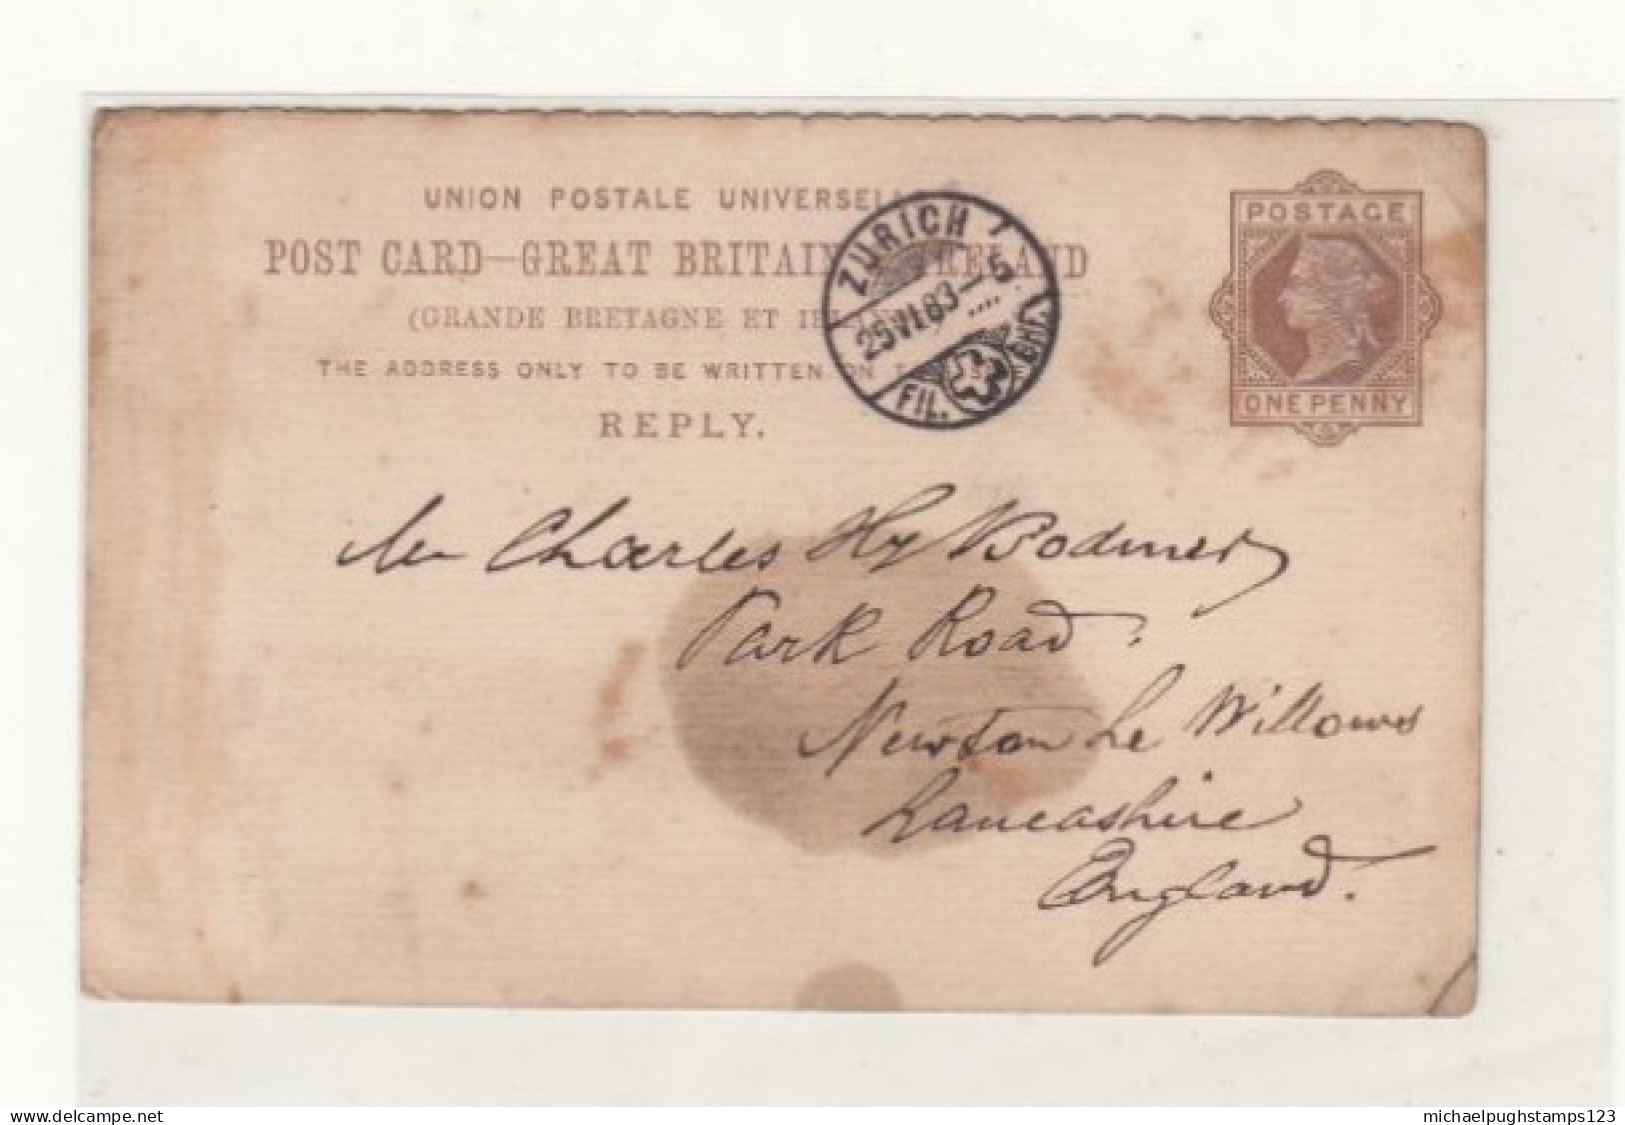 UNION POSTALE UNIVERSELLE
POST CARD—GREAT BRITAIN & IRELAND
(GRANDE BRETAGNE ET
THE ADDRESS ONLY TO BE WRITTEN ON
REPLY.
ZÜRICH
25 VI 83 — 5
FIL. BHF.
POSTAGE
ONE PENNY
Mr Charles Hy Bodmer
Park Road,
Newton Le Willows
Lancashire
England.
www.delcampe.net
michaelpughstamps123